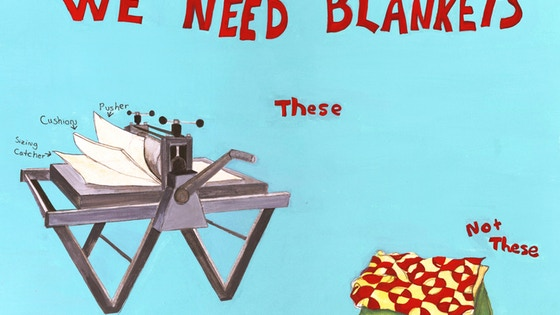 WE NEED BLANKETS
These
Pusher
Cushion
Sizing
Catcher
Not
These